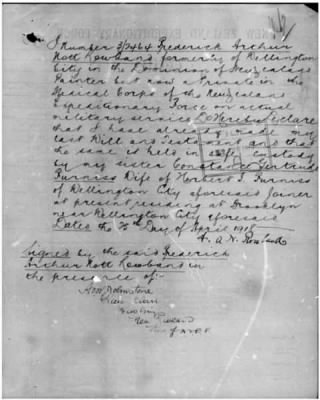 NEW ZEALAND EXPEDITIONARY FORCE
I Number 3/2464 Frederick Arthur
Nott Rowbands formerly of Wellington
City in the Dominion of New Zealand
Painter but now a Private in the
Medical Corps of the New Zealand
Expeditionary Force on actual
military service Do Hereby Declare
that I have already made my
last Will and Testament and that
the same is held in safe custody
by my sister Constance Gertrude
Furniss Wife of Herbert T. Furniss
of Wellington City aforesaid Joiner
at present residing at Brooklyn
near Wellington City aforesaid
Dated the Day of April 1918
Signed by the said Frederick
Arthur Nott Rowbands in
the presence of:-
New Zealand